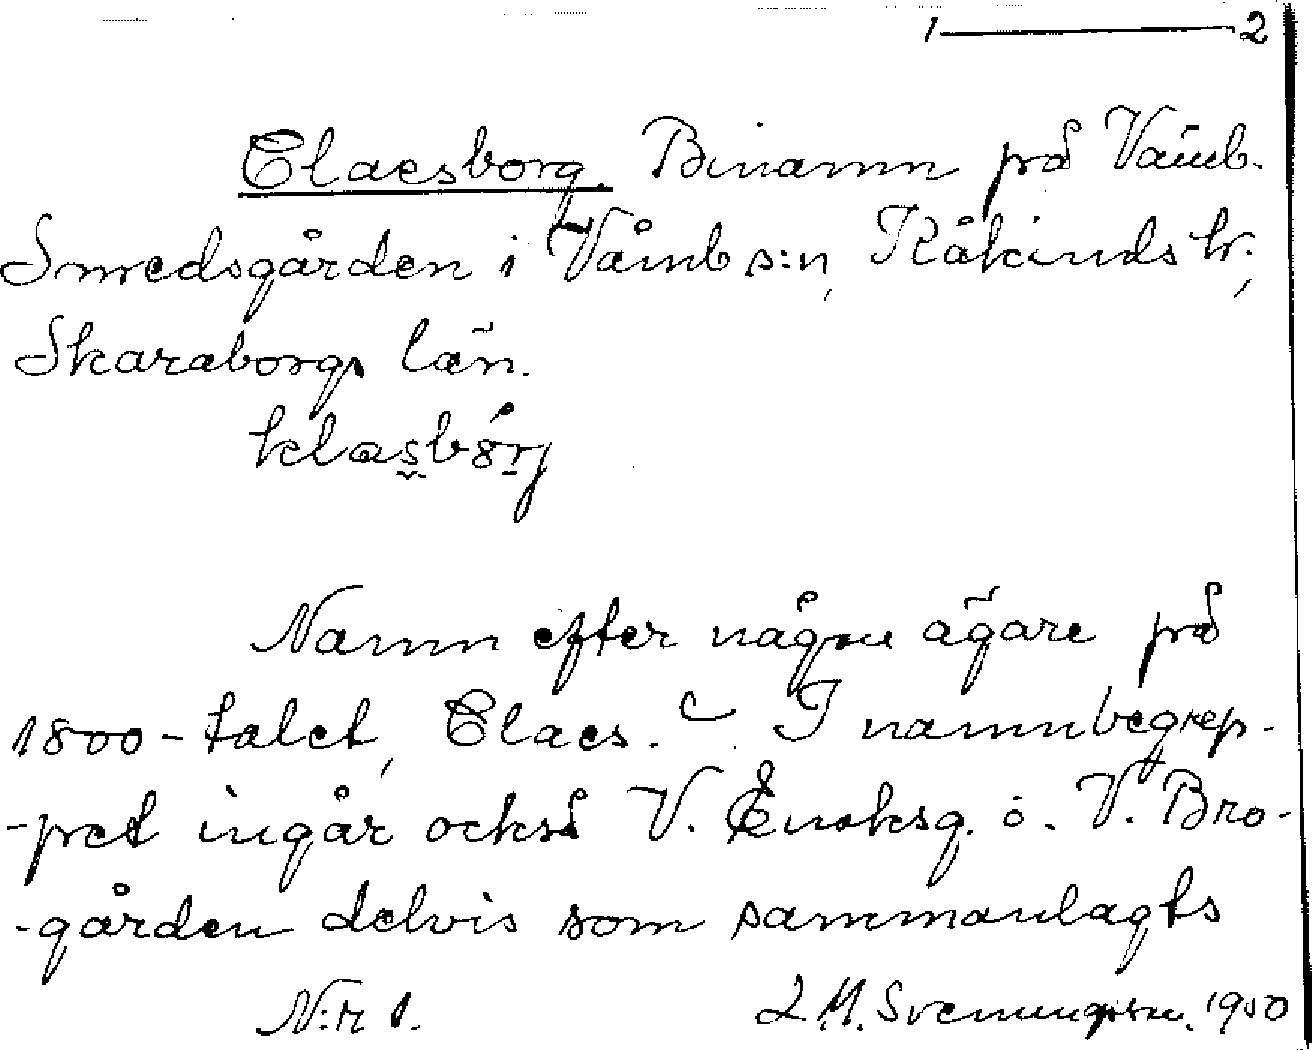 1 ——— 2
Claesborg. Binamn på Våmb-
Smedsgården i Våmb s:n, Kåkinds hr,
Skaraborgs län.
klasbórj
Namn efter någon ägare på
1800-talet, Claes. I namnbegrep-
-pet ingår också V. Enoksg. o. V. Bro-
-gården delvis som sammanlagts
N:r 1. L.M. Svenungsson. 1950